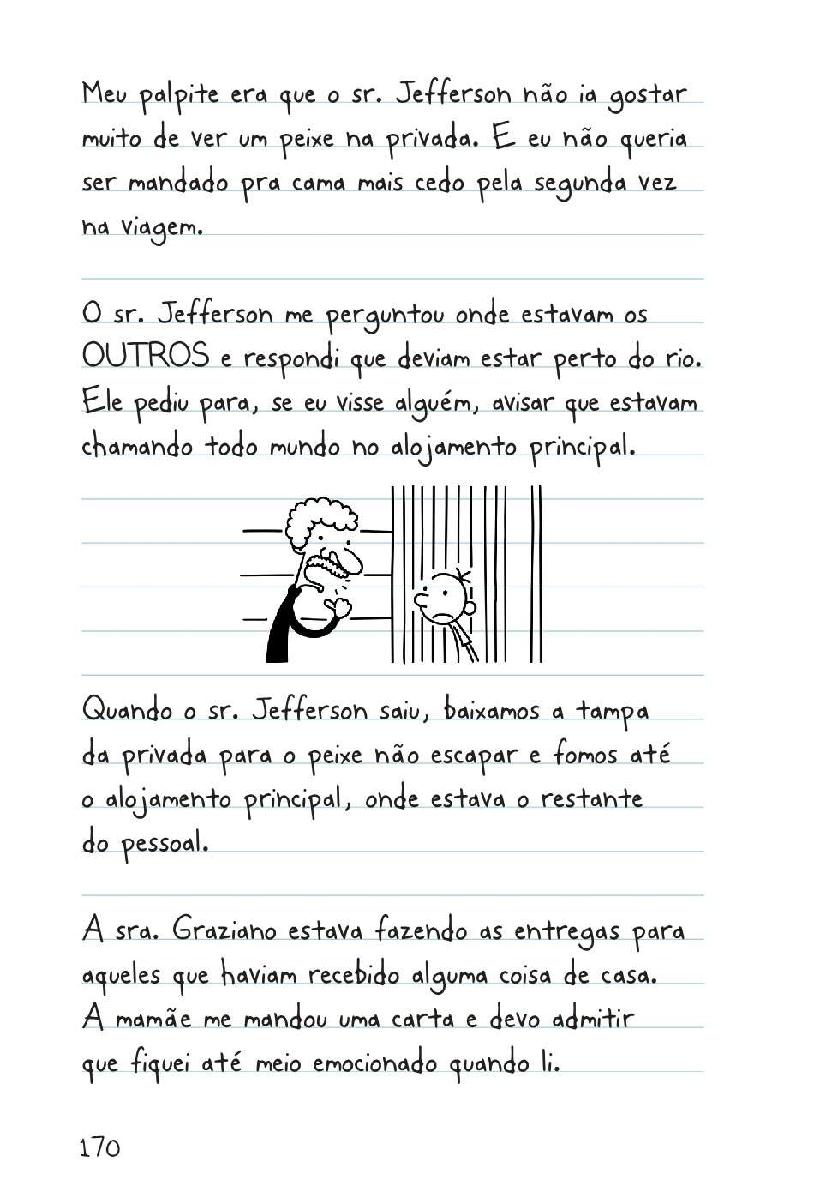 Meu palpite era que o sr. Jefferson não ia gostar
muito de ver um peixe na privada. E eu não queria
ser mandado pra cama mais cedo pela segunda vez
na viagem.
O sr. Jefferson me perguntou onde estavam os
OUTROS e respondi que deviam estar perto do rio.
Ele pediu para, se eu visse alguém, avisar que estavam
chamando todo mundo no alojamento principal.
Quando o sr. Jefferson saiu, baixamos a tampa
da privada para o peixe não escapar e fomos até
o alojamento principal, onde estava o restante
do pessoal.
A sra. Graziano estava fazendo as entregas para
aqueles que haviam recebido alguma coisa de casa.
A mamãe me mandou uma carta e devo admitir
que fiquei até meio emocionado quando li.
170